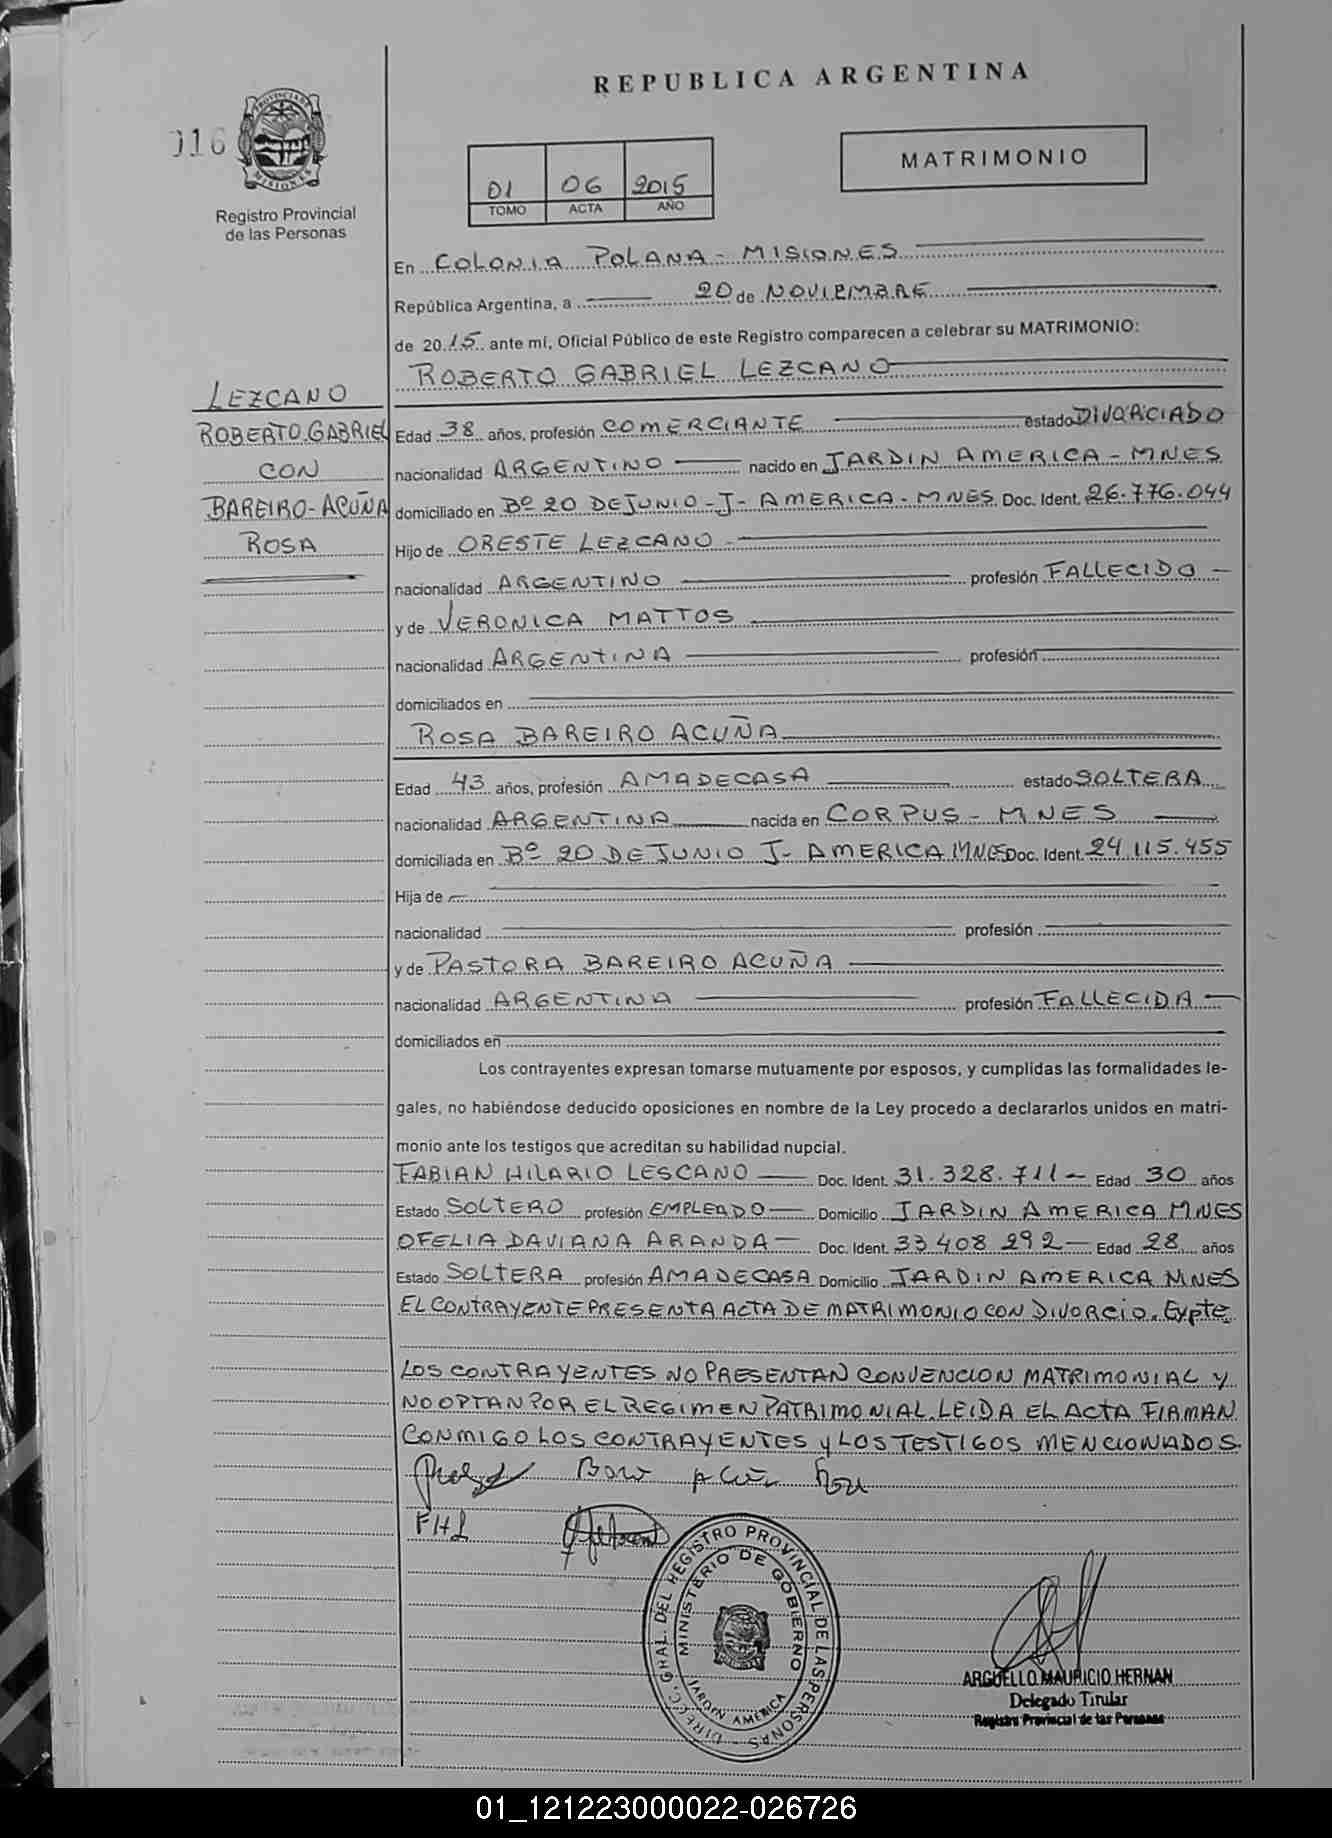 REPUBLICA ARGENTINA
016
PROVINCIA DE MISIONES
Registro Provincial
de las Personas
01 06 2015
TOMO ACTA AÑO
MATRIMONIO
En COLONIA POLANA - MISIONES
República Argentina, a 20 de NOVIEMBRE
de 2015 ante mí, Oficial Público de este Registro comparecen a celebrar su MATRIMONIO:
ROBERTO GABRIEL LEZCANO
LEZCANO
ROBERTO GABRIEL
CON
BAREIRO-ACUÑA
ROSA
Edad 38 años, profesión COMERCIANTE estado DIVORCIADO
nacionalidad ARGENTINO nacido en JARDIN AMERICA - MNES
domiciliado en Bº 20 DE JUNIO - J - AMERICA - MNES Doc. Ident. 26.776.044
Hijo de ORESTE LEZCANO -
nacionalidad ARGENTINO profesión FALLECIDO -
y de VERONICA MATTOS
nacionalidad ARGENTINA profesión
domiciliados en
ROSA BAREIRO ACUÑA
Edad 43 años, profesión AMADECASA estado SOLTERA
nacionalidad ARGENTINA nacida en CORPUS - MNES
domiciliada en Bº 20 DE JUNIO J- AMERICA MNES Doc. Ident. 24.115.455
Hija de
nacionalidad profesión
y de PASTORA BAREIRO ACUÑA
nacionalidad ARGENTINA profesión FALLECIDA -
domiciliados en
Los contrayentes expresan tomarse mutuamente por esposos, y cumplidas las formalidades le-
gales, no habiéndose deducido oposiciones en nombre de la Ley procedo a declararlos unidos en matri-
monio ante los testigos que acreditan su habilidad nupcial.
FABIAN HILARIO LESCANO Doc. Ident. 31.328.711 - Edad 30 años
Estado SOLTERO profesión EMPLEADO Domicilio JARDIN AMERICA MNES
OFELIA DAVIANA ARANDA Doc. Ident. 33 408 292 - Edad 28 años
Estado SOLTERA profesión AMADECASA Domicilio JARDIN AMERICA MNES
EL CONTRAYENTE PRESENTA ACTA DE MATRIMONIO CON DIVORCIO. Expte
LOS CONTRAYENTES NO PRESENTAN CONVENCION MATRIMONIAL Y
NO OPTAN POR EL REGIMEN PATRIMONIAL. LEIDA EL ACTA FIRMAN
CONMIGO LOS CONTRAYENTES Y LOS TESTIGOS MENCIONADOS.
FHL
DIREC. GRAL. DEL REGISTRO PROVINCIAL DE LAS PERSONAS
MINISTERIO DE GOBIERNO
JARDIN AMERICA
ARGUELLO MAURICIO HERNAN
Delegado Titular
Registro Provincial de las Personas
01_121223000022-026726